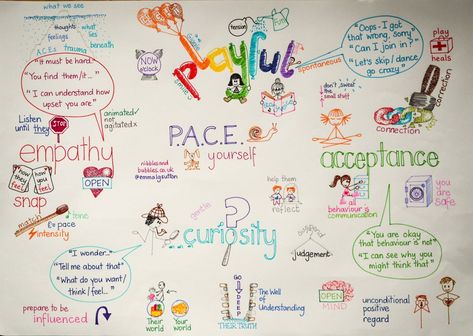 what we see
thoughts
feelings
what
lies
beneath
A.C.Es trauma
"It must be hard"
"You find them/it..."
"I can understand how
upset you are"
Listen
until they
STOP
animated✓
not
agitated x
empathy
how
they
feel
how
you
feel
OPEN
snap
match
tone
E♭ pace
intensity
tension
FUN
NOW
o'clock
playful
spontaneous
"Oops - I got
that wrong, sorry"
"Can I join in?"
"Let's skip/dance,
go crazy"
play
heals
P.A.C.E.
yourself
nibblesand
bubbles.co.uk
@emmalgsutton
don't sweat
the
small stuff
connection
correction
acceptance
all
behaviour is
communication
you are
safe
"You are okay
that behaviour is not"
"I can see why you
might think that"
help them
reflect
gentle
?
...curiosity
judgement
"I wonder..."
"Tell me about that"
"What do you want/
think/feel..."
prepare to be
influenced
Their
world
Your
world
GO
DEEP
The Well
of
Understanding
THEIR TRUTH
OPEN
MIND
unconditional
positive
regard